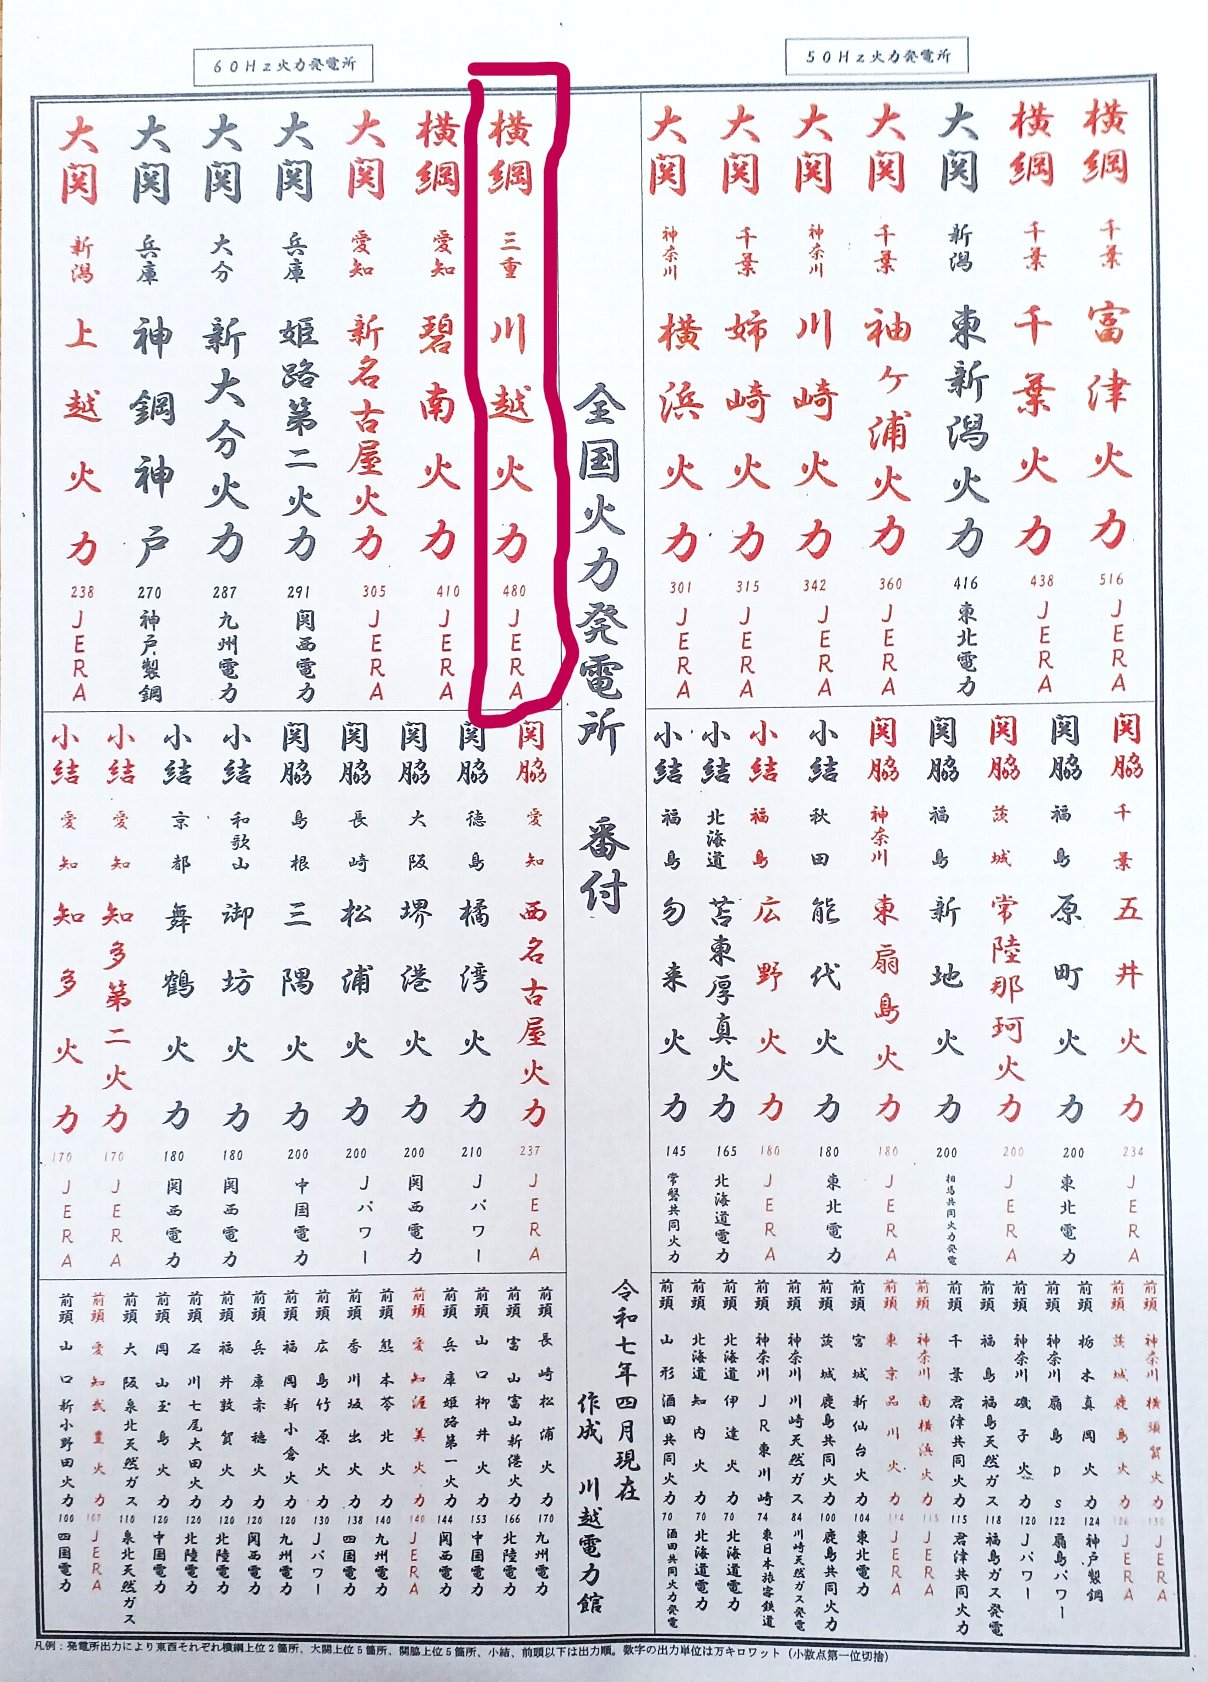 50Hz火力発電所
横綱 千葉 富津火力 516 JERA
横綱 千葉 千葉火力 438 JERA
大関 新潟 東新潟火力 416 東北電力
大関 千葉 袖ケ浦火力 360 JERA
大関 神奈川 川崎火力 342 JERA
大関 千葉 姉崎火力 315 JERA
大関 神奈川 横浜火力 301 JERA
関脇 千葉 五井火力 234 JERA
関脇 福島 原町火力 200 東北電力
関脇 茨城 常陸那珂火力 200 JERA
関脇 福島 新地火力 200 相馬共同火力発電
関脇 神奈川 東扇島火力 180 JERA
小結 秋田 能代火力 180 東北電力
小結 福島 広野火力 180 JERA
小結 北海道 苫東厚真火力 165 北海道電力
小結 福島 勿来火力 145 常磐共同火力
前頭 神奈川 横須賀火力 130 JERA
前頭 茨城 鹿島火力 126 JERA
前頭 栃木 真岡火力 124 神戸製鋼
前頭 神奈川 扇島Ps 122 扇島パワー
前頭 神奈川 磯子火力 120 Jパワー
前頭 福島 福島天然ガス 118 福島ガス発電
前頭 千葉 君津共同火力 115 君津共同火力
前頭 神奈川 南横浜火力 115 JERA
前頭 東京 品川火力 114 JERA
前頭 宮城 新仙台火力 104 東北電力
前頭 茨城 鹿島共同火力 100 鹿島共同火力
前頭 神奈川 川崎天然ガス 84 川崎天然ガス発電
前頭 神奈川 JR東川崎 74 東日本旅客鉄道
前頭 北海道 伊達火力 70 北海道電力
前頭 北海道 知内火力 70 北海道電力
前頭 山形 酒田共同火力 70 酒田共同火力発電
全国火力発電所 番付
令和七年四月現在
作成 川越電力館
60Hz火力発電所
横綱 三重 川越火力 480 JERA
横綱 愛知 碧南火力 410 JERA
大関 愛知 新名古屋火力 305 JERA
大関 兵庫 姫路第二火力 291 関西電力
大関 大分 新大分火力 287 九州電力
大関 兵庫 神鋼神戸 270 神戸製鋼
大関 新潟 上越火力 238 JERA
関脇 愛知 西名古屋火力 237 JERA
関脇 徳島 橘湾火力 210 Jパワー
関脇 大阪 堺港火力 200 関西電力
関脇 長崎 松浦火力 200 Jパワー
関脇 島根 三隅火力 200 中国電力
小結 和歌山 御坊火力 180 関西電力
小結 京都 舞鶴火力 180 関西電力
小結 愛知 知多第二火力 170 JERA
小結 愛知 知多火力 170 JERA
前頭 長崎 松浦火力 170 九州電力
前頭 富山 富山新港火力 166 北陸電力
前頭 山口 柳井火力 153 中国電力
前頭 兵庫 姫路第一火力 144 関西電力
前頭 愛知 渥美火力 140 JERA
前頭 熊本 苓北火力 140 九州電力
前頭 香川 坂出火力 138 四国電力
前頭 広島 竹原火力 130 Jパワー
前頭 福岡 新小倉火力 120 九州電力
前頭 兵庫 赤穂火力 120 関西電力
前頭 福井 敦賀火力 120 北陸電力
前頭 石川 七尾大田火力 120 北陸電力
前頭 岡山 玉島火力 120 中国電力
前頭 大阪 泉北天然ガス 110 泉北天然ガス
前頭 愛知 武豊火力 107 JERA
前頭 山口 新小野田火力 100 四国電力
凡例：発電所出力により東西それぞれ横綱上位2箇所、大関上位5箇所、関脇上位5箇所、小結、前頭以下は出力順。数字の出力単位は万キロワット（小数点第一位切捨）